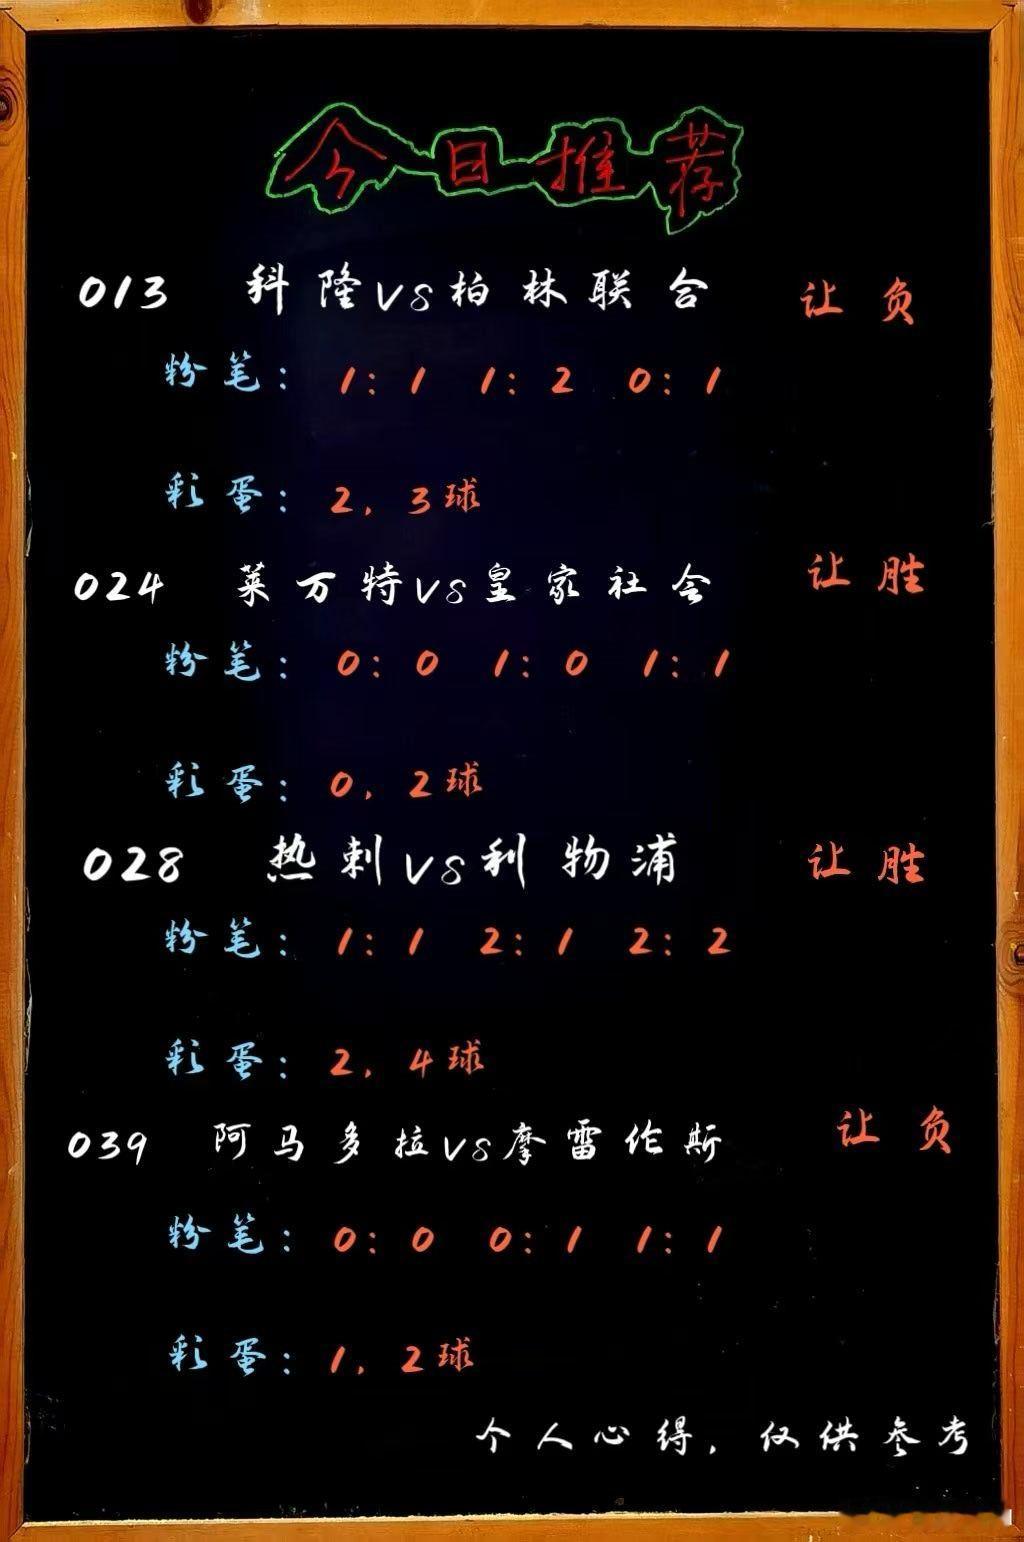 今日推荐
013 科隆vs柏林联合 让负
粉笔：1:1 1:2 0:1
彩蛋：2，3球
024 莱万特vs皇家社会 让胜
粉笔：0:0 1:0 1:1
彩蛋：0，2球
028 热刺vs利物浦 让胜
粉笔：1:1 2:1 2:2
彩蛋：2，4球
039 阿马多拉vs摩雷伦斯 让负
粉笔：0:0 0:1 1:1
彩蛋：1，2球
个人心得，仅供参考